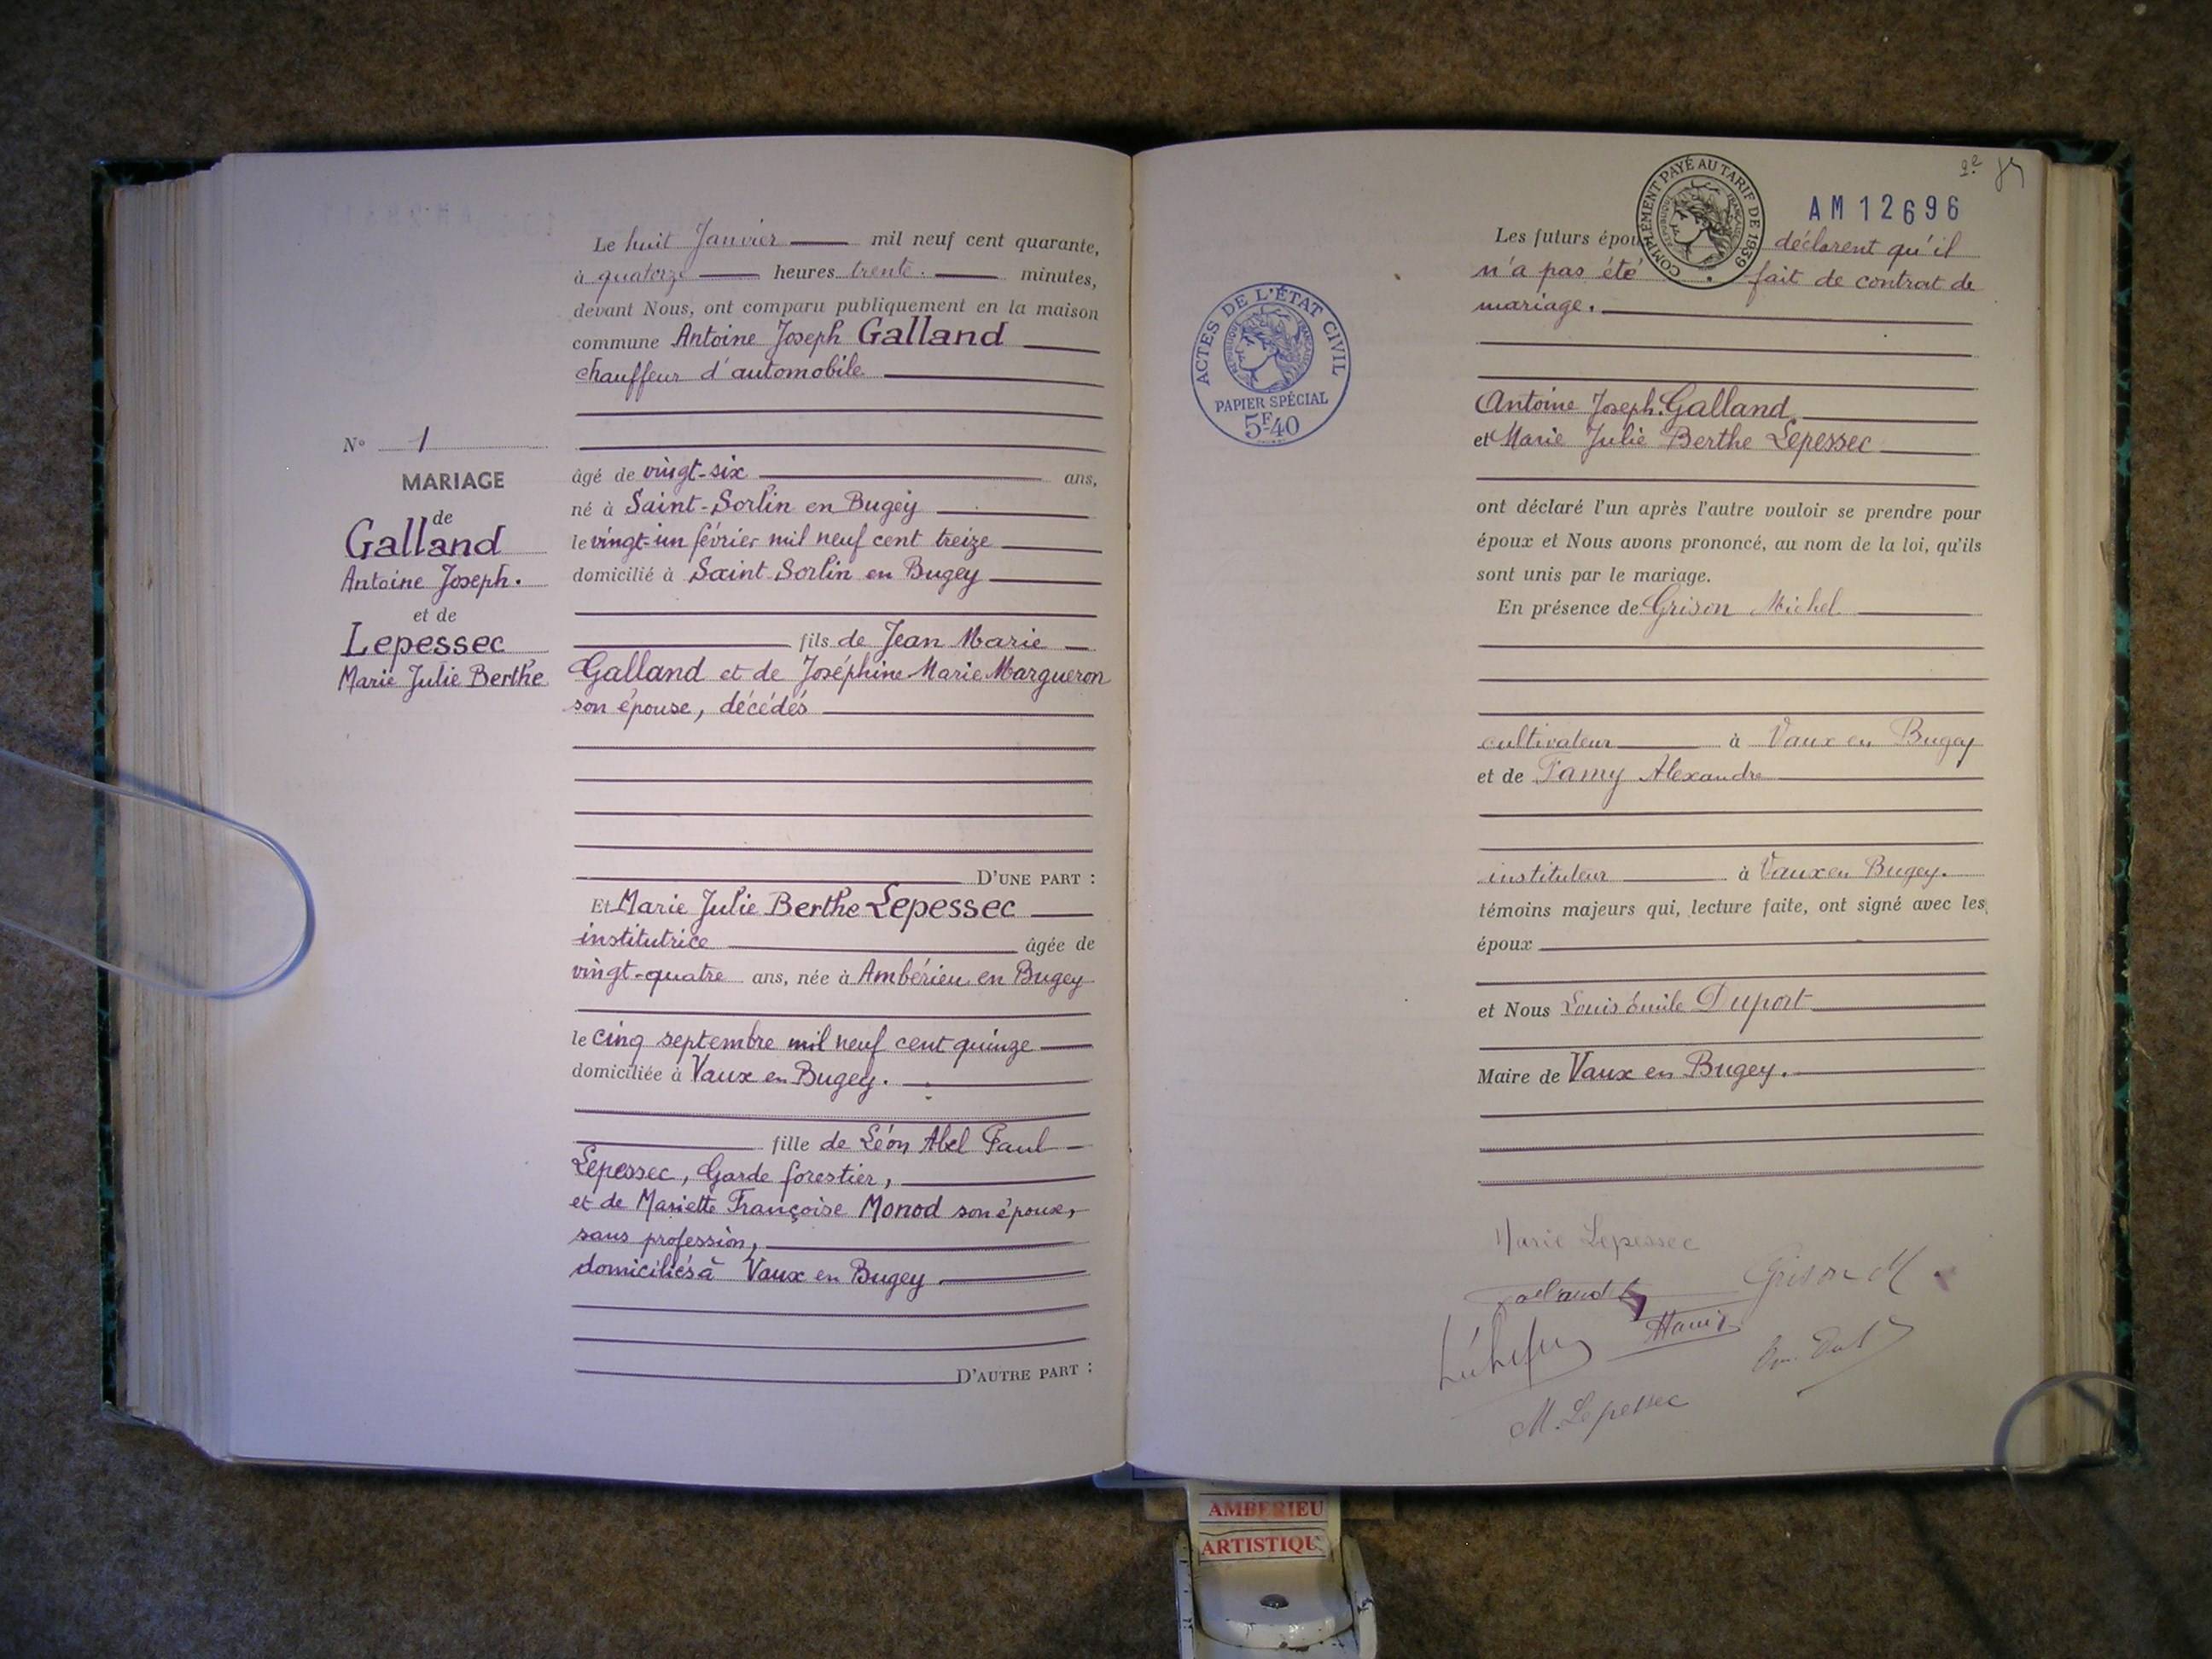 Le huit Janvier mil neuf cent quarante,
à quatorze heures trente. minutes,
devant Nous, ont comparu publiquement en la maison
commune Antoine Joseph Galland
chauffeur d'automobile
N° 1
MARIAGE
de
Galland
Antoine Joseph.
et de
Lepessec
Marie Julie Berthe
âgé de vingt-six ans,
né à Saint-Sorlin en Bugey
le vingt-un février mil neuf cent treize
domicilié à Saint-Sorlin en Bugey
fils de Jean Marie
Galland et de Joséphine Marie Margueron
son épouse, décédés
D'UNE PART :
Et Marie Julie Berthe Lepessec
institutrice âgée de
vingt-quatre ans, née à Ambérieu en Bugey
le cinq septembre mil neuf cent quinze
domiciliée à Vaux en Bugey.
fille de Léon Abel Paul
Lepessec, Garde forestier,
et de Mariette Françoise Monod son épouse,
sans profession,
domiciliés à Vaux en Bugey
D'AUTRE PART :
2e
AM12696
COMPLÉMENT PAYÉ AU TARIF DE 1939
RÉPUBLIQUE FRANÇAISE
Les futurs épou déclarent qu'il
n'a pas été fait de contrat de
mariage.
ACTES DE L'ÉTAT CIVIL
RÉPUBLIQUE FRANÇAISE
PAPIER SPÉCIAL
5F40
Antoine Joseph Galland
et Marie Julie Berthe Lepessec
ont déclaré l'un après l'autre vouloir se prendre pour
époux et Nous avons prononcé, au nom de la loi, qu'ils
sont unis par le mariage.
En présence de Grison Michel
cultivateur à Vaux en Bugey
et de Famy Alexandre
instituteur à Vaux en Bugey.
témoins majeurs qui, lecture faite, ont signé avec les
époux
et Nous Louis émile Duport
Maire de Vaux en Bugey.
Marie Lepessec
Galland
Grison M.
M. Lepessec
AMBERIEU
ARTISTIQU